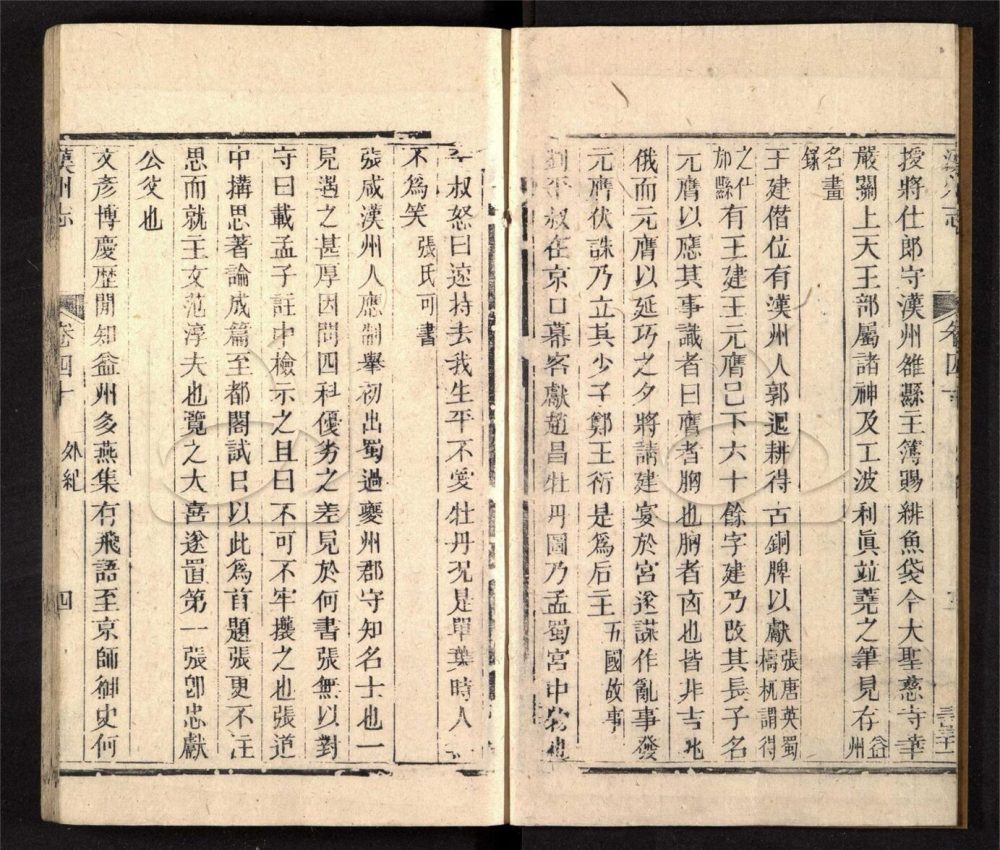 授將仕郎守漢州雒縣主簿賜緋魚袋今大聖慈寺華
嚴閣上天王部屬諸神及工波利眞並堯之筆見存益州
名畫
錄
王建僭位有漢州人郭迴耕得古銅牌以獻張唐英蜀檮杌謂得
之什邡縣有王建王元膺已下六十餘字建乃改其長子名
元膺以應其事識者曰膺者胸也胸者㐫也皆非吉兆
俄而元膺以延巧之夕將請建宴於宮遂謀作亂事發
元膺伏誅乃立其少子鄭王衍是爲后主五國故事
叔在京口幕客獻趙昌牡丹圖乃孟蜀宮中物
漢州志
卷四十
叔怒曰速持去我生平不愛牡丹況是單葉時人
不爲笑張氏可書
張咸漢州人應制舉初出蜀過夔州郡守知名士也一
見遇之甚厚因問四科優劣之差見於何書張無以對
守曰載孟子註中檢示之且曰不可不牢攏之也張道
中搆思著論成篇至都閣試曰以此爲首題張更不注
思而就主文范淳夫也覽之大喜遂置第一張卽忠獻
公父也
文彥博慶歷閒知益州多燕集有飛語至京師御史何
漢州志
卷四十
外紀
四